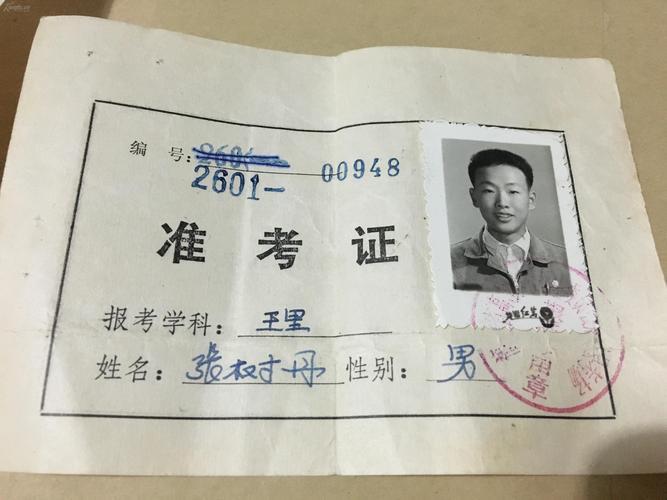 编号：
2601- 00948
准考证
报考学科：王里
姓名：张树丹 性别：男
用章